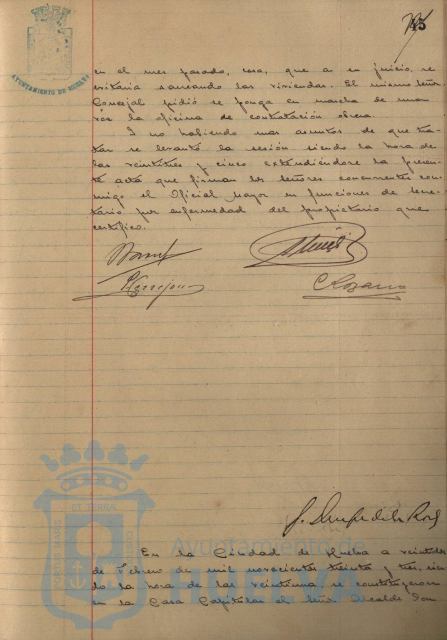 45
AYUNTAMIENTO DE HUELVA
en el mes pasado, cosa, que a su juicio, se
evitaria saneando las viviendas. El mismo señor
Concejal pidió se ponga en marcha de nue
vo la oficina de contratación obrera.
Y no habiendo mas asuntos de que tra
tar se levantó la sesión siendo la hora de
las veintitres y cinco extendiéndose la presen
te acta que firman los señores concurrentes con
migo el Oficial Mayor en funciones de Secre
tario por enfermedad del propietario que
certifico.
En la Ciudad de Huelva a veintidos
de Febrero de mil novecientos treinta y tres, sien
do la hora de las veintiuna, se constituyeron
en la Casa Capitular el Señor Alcalde Don
Ayuntamiento de
HUELVA